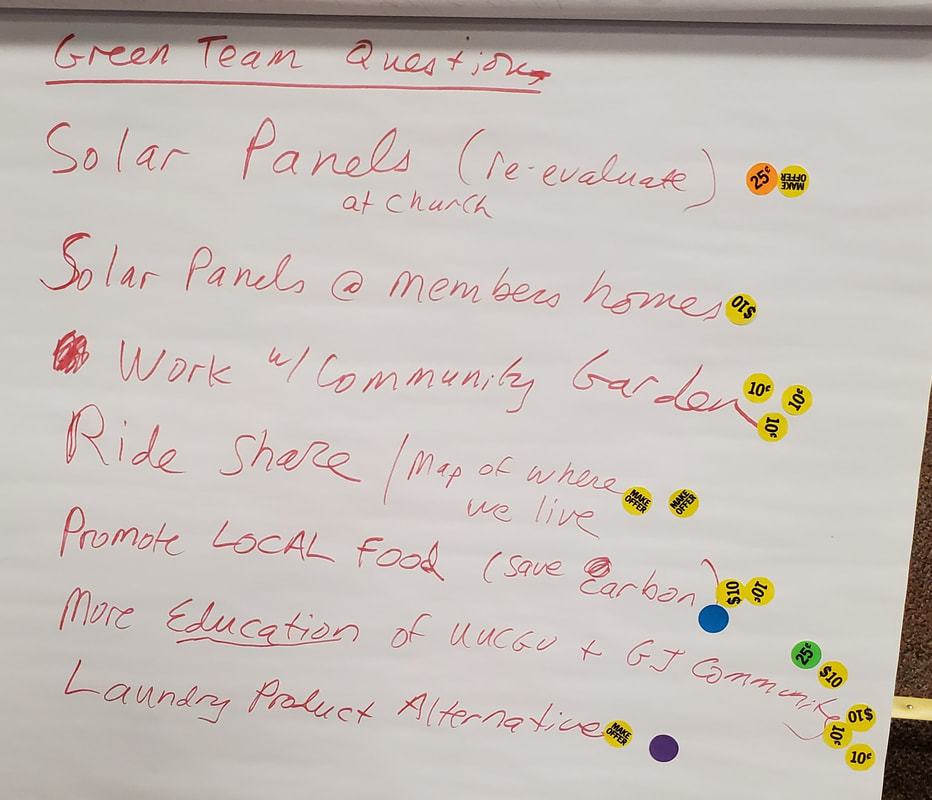 Green Team Questions
Solar Panels (re-evaluate) 25¢ MAKE OFFER
at church
Solar Panels @ members homes $10
Work w/ Community Garden 10¢ 10¢ 10¢
Ride Share / Map of where MAKE OFFER MAKE OFFER
we live
Promote LOCAL Food (save Carbon) $10 10¢
More Education of UUCGV + GJ Community 25¢ $10 $10 10¢ 10¢
Laundry Product Alternative MAKE OFFER